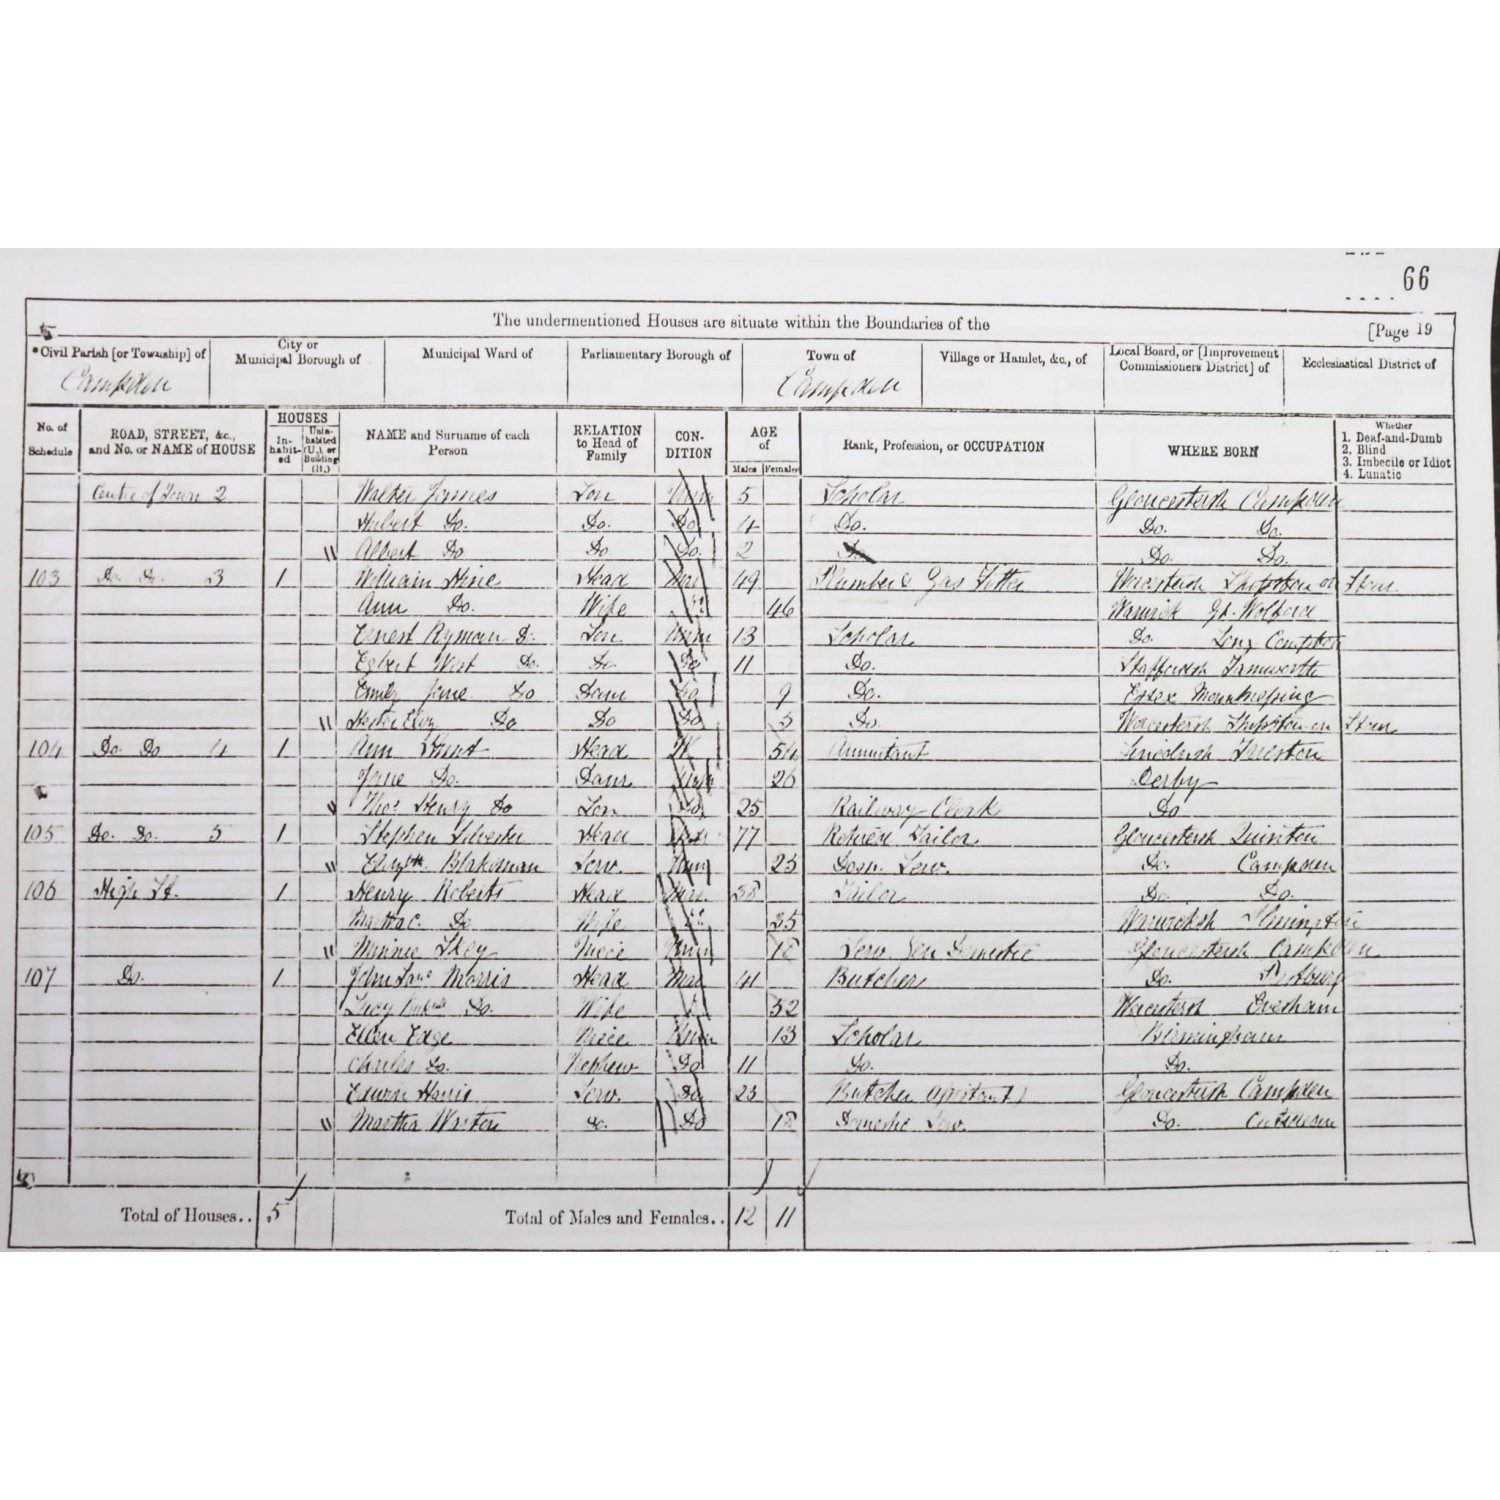 66
The undermentioned Houses are situate within the Boundaries of the [Page 19
*Civil Parish [or Township] of City or Municipal Borough of Municipal Ward of Parliamentary Borough of Town of Village or Hamlet, &c., of Local Board, or [Improvement Commissioners District] of Ecclesiastical District of
Campden Campden
No. of Schedule ROAD, STREET, &c., and No. or NAME of HOUSE HOUSES Inhabited Uninhabited (U.), or Building (B.) NAME and Surname of each Person RELATION to Head of Family CONDITION AGE of Males Females Rank, Profession, or OCCUPATION WHERE BORN Whether 1. Deaf-and-Dumb 2. Blind 3. Imbecile or Idiot 4. Lunatic
Centre of Town 2 Walter James Son Unm 5 Scholar Gloucestersh Campden
Hubert Do. Do. Do 4 Do. Do. Do.
" Albert Do Do Do. 2 Do. Do.
103 Do. Do. 3 1 William Hine Head Mar 49 Plumber & Gas Fitter Worcestersh Shipston on Stour
Ann Do. Wife 46 Warwick Gt. Wolford
Ernest Ryman Do. Son Unm 13 Scholar Do Long Compton
Egbert West Do. Do. Do 11 Do. Staffordsh Tamworth
Emily Jane Do Daur Do 9 Do. Essex
" Hester Eliz Do Do Do 5 Do. Worcestersh Shipston on Stour
104 Do. Do 4 1 Ann Hunt Head W 54 Annuitant Lincolnsh
Jane Do. Daur Unm 26 Derby
" Thos Henry Do Son Do 25 Railway Clerk Do
105 Do. Do. 5 1 Stephen Silvester Head 77 Retired Tailor Gloucestersh Quinton
" Elizth Blakeman Serv. Unm 23 Dom Serv. Do. Campden
106 High St. 1 Henry Roberts Head Mar. 38 Tailor Do. Do.
Martha C. Do Wife 35 Warwicksh Ilmington
" Minnie Niece Unm 18 Serv Gen Domestic Gloucestersh Campden
107 Do. 1 John Morris Head Mar 41 Butcher Do.
Lucy Do. Wife 52 Worcestersh Evesham
Ellen Edge Niece Unm 13 Scholar Birmingham
Charles Do. Nephew Do 11 Do. Do.
Edwin Harris Serv. Do 23 Butcher (Assistant) Gloucestersh Campden
" Martha Do. Do 18 Domestic Serv. Do. Cutsdean
Total of Houses.. 5 Total of Males and Females.. 12 11